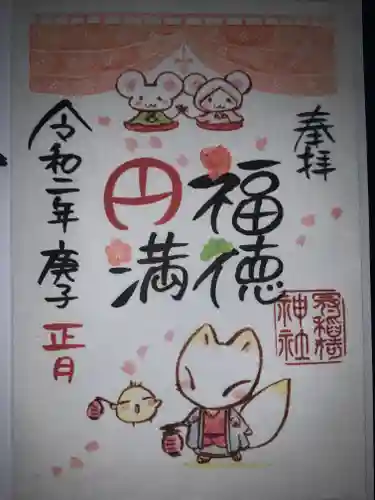 奉拝
福徳
円満
令和二年 庚子 正月
神社